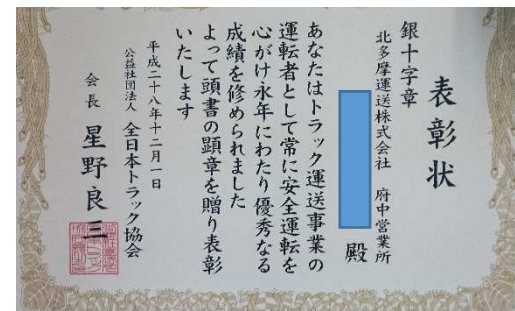 表彰状
銀十字章
北多摩運送株式会社 府中営業所
殿
あなたはトラック運送事業の
運転者として常に安全運転を
心がけ永年にわたり優秀なる
成績を修められました
よって頭書の顕章を贈り表彰
いたします
平成二十八年十二月一日
公益社団法人 全日本トラック協会
会長 星野良三